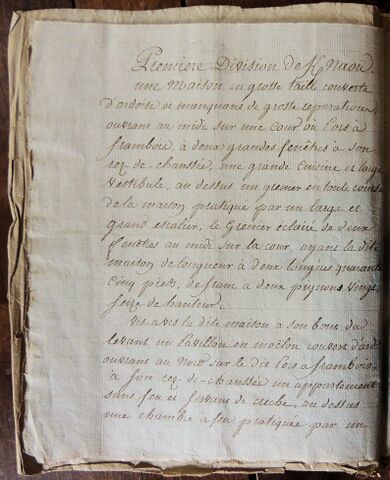 Premiere Division de K/naou.
une Maison en grosse taille couverte
d'ardoise et manquant de grosse reparation
ouvrant au midi sur une cour où Puis a
frambois, à deux grandes fenêtres a son
rez-de-chaussée, une grande cuisine et large
vestibule, au dessus un grenier en toute
de la maison pratiqué par un large et
grand escalier, le Grenier éclairé de deux
fenêtres au midi sur la cour, ayant la dite
maison de longueur à deux longères quarante
cinq pieds, de franc à deux pignons vingt
seize de hauteur.
vis a vis la dite maison a son bout du
levant un Pavillon en moëlon couvert d'ardoise
ouvrant au Nord sur le dit Puis a frambois,
a son rez-de-chaussée un appartement
sans feu et servant de, au dessus
une chambre a feu pratiquée par un